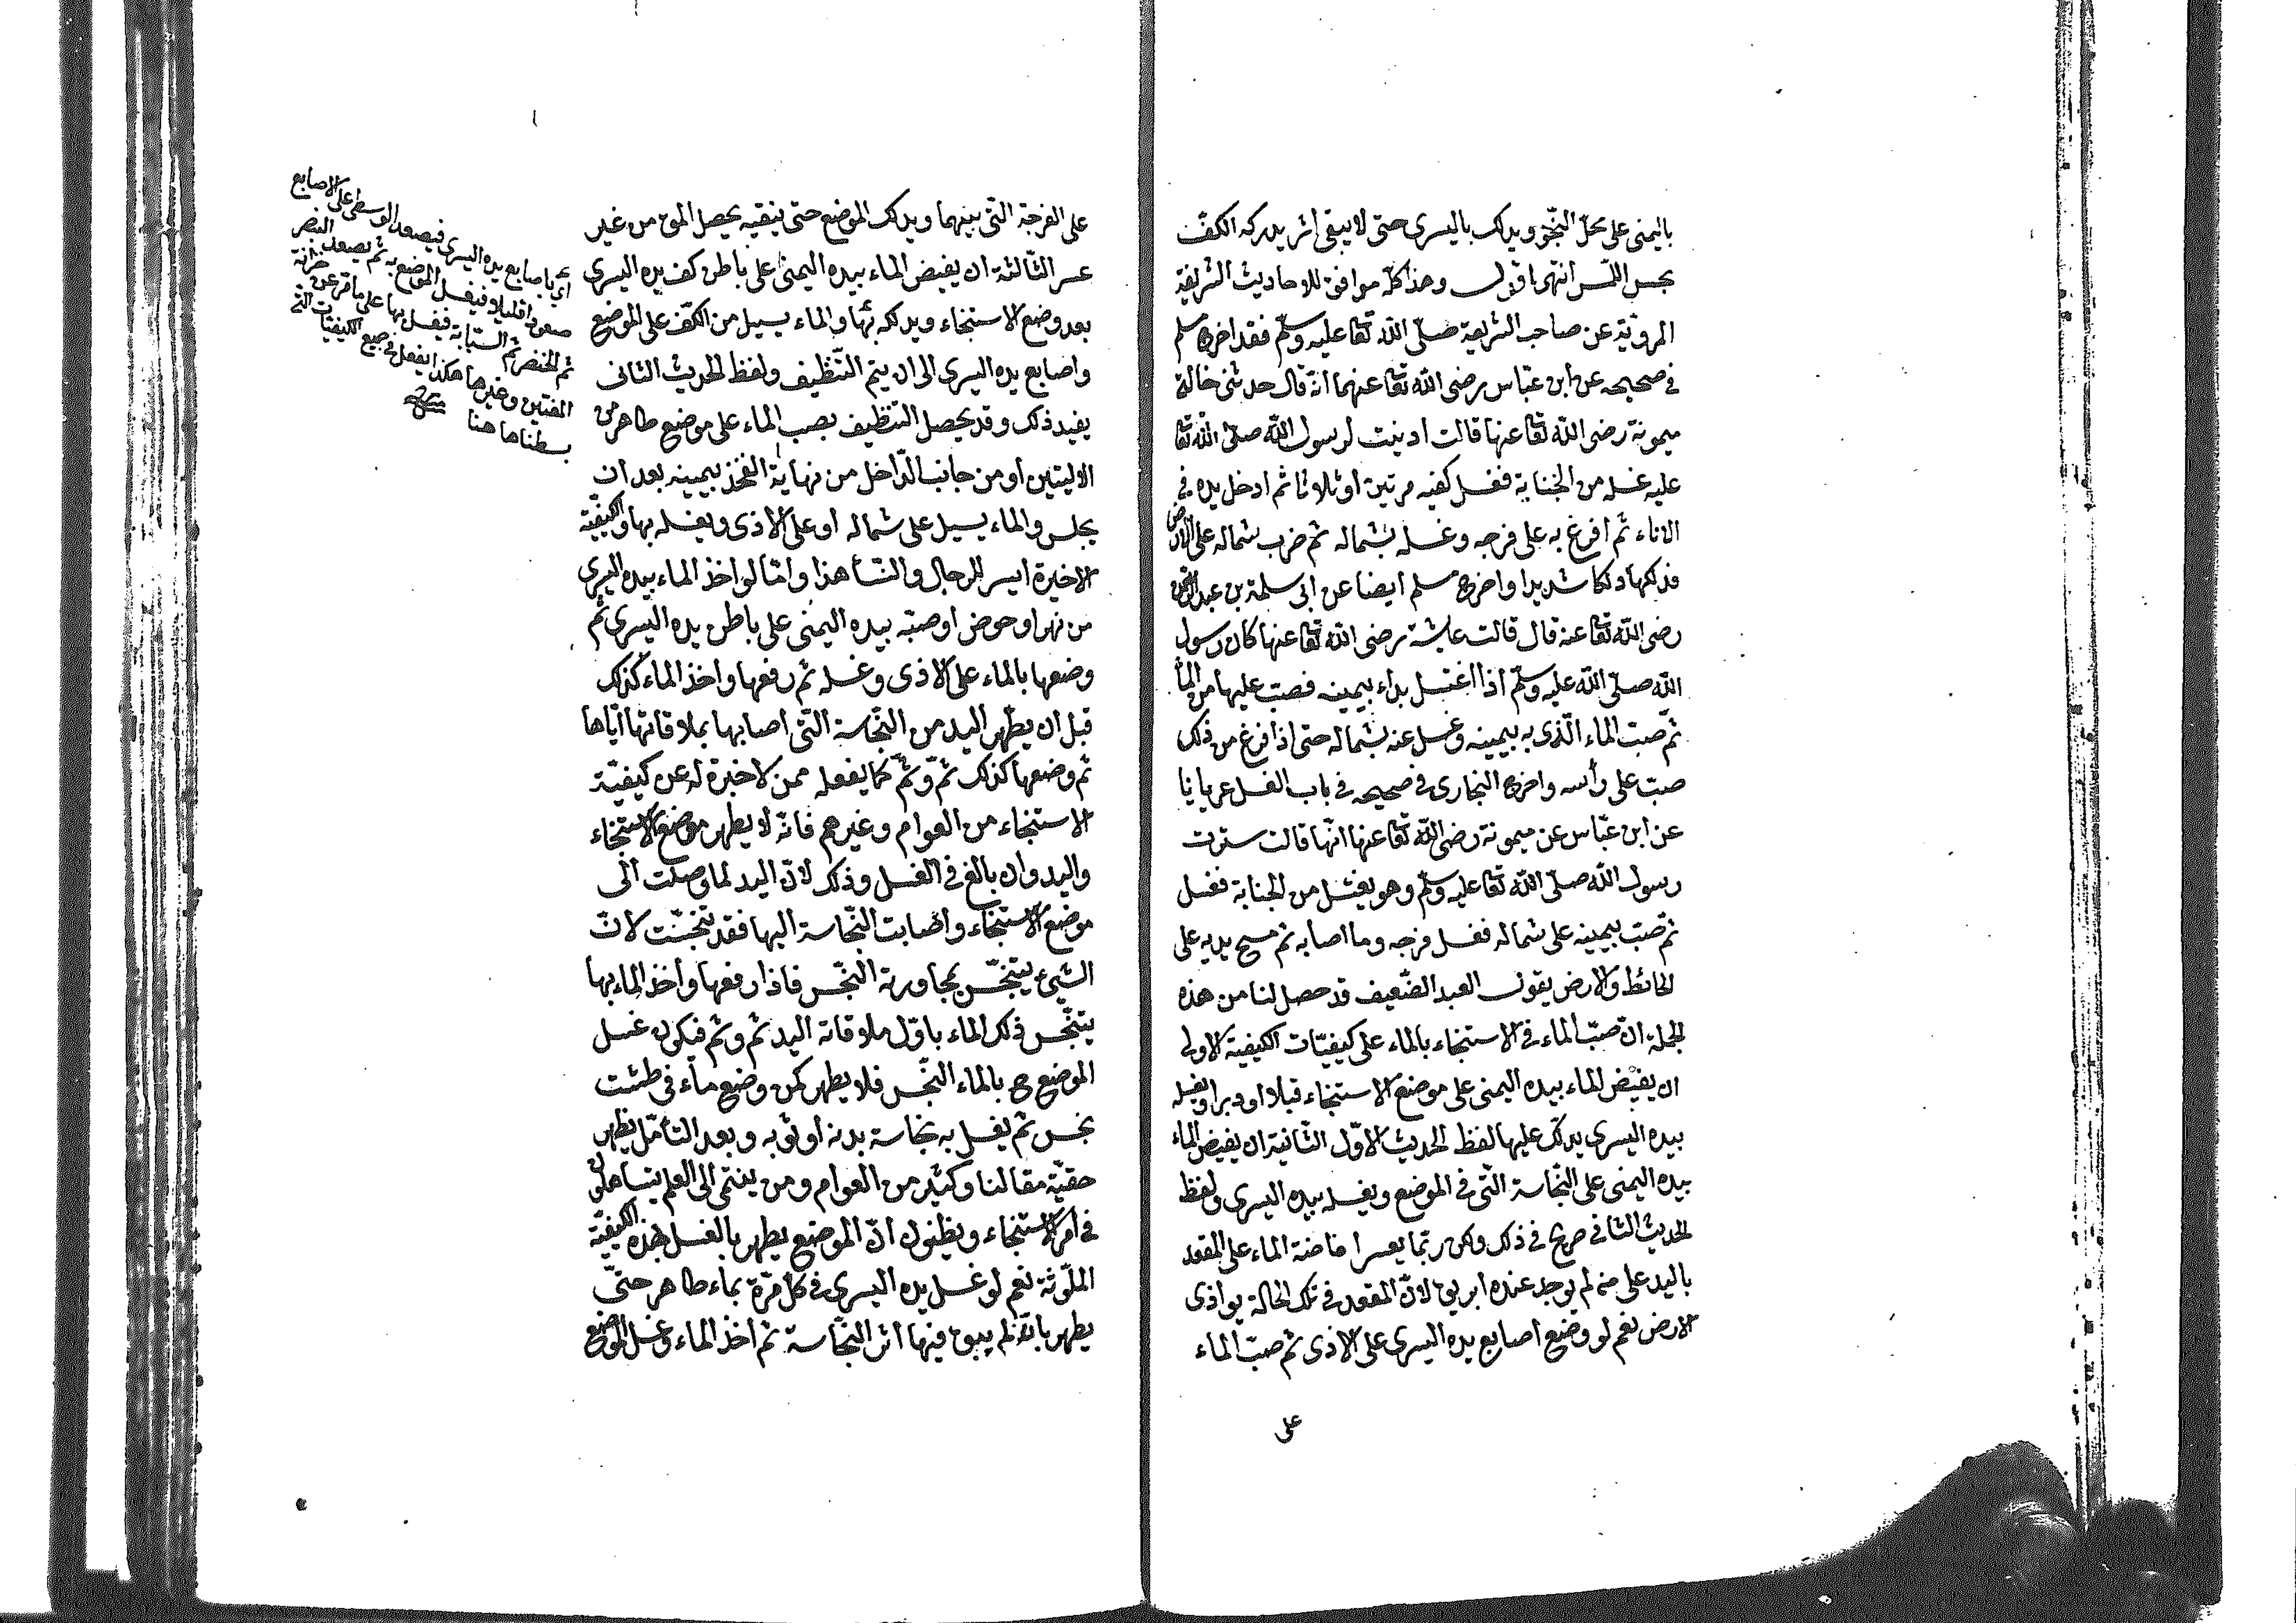 باليمنى على محل النجو ويدلك باليسرى حتى لا يبقى اثر يدركه الكف
بحس اللمس انتهى اقول وهذا كله موافق للاحاديث الشريفة
المروية عن صاحب الشريعة صلى الله تعا عليه وسلم فقد اخرج مسلم
في صحيحه عن ابن عباس رضى الله تعا عنهما انه قال حدثنى خالة
ميمونة رضى الله تعا عنها قالت ادنيت لرسول الله صلى الله تعا
عليه غسله من الجنابة فغسل كفيه مرتين أو ثلاثا ثم ادخل يده في
الاناء ثم افرغ به على فرجه وغسله بشماله ثم ضرب بشماله على الارض
فدلكها دلكا شديدا واخرج مسلم ايضا عن ابى سلمة بن عبد الرحمن
رضى الله تعا عنه قال قالت عايشة رضى الله تعا عنها كان رسول
الله صلى الله عليه وسلم اذا اغتسل بداء بيمينه فصب عليها من الماء
ثم صب الماء الذى به بيمينه وغسل عنه بشماله حتى اذا فرغ من ذلك
صب على رأسه واخرج البخارى في صحيحه في باب الغسل عريانا
عن ابن عباس عن ميمونة رضى الله تعا عنها انها قالت سترت
رسول الله صلى الله تعا عليه وسلم وهو يغتسل من الجنابة فغسل
ثم صب بيمينه على شماله فغسل فرجه وما اصابه ثم مسح يديه على
الحائط والارض يقول العبد الضعيف قد حصل لنا من هذه
الجملة ان صب الماء في الاستنجاء بالماء على كيفيات الكيفية الاولى
ان يفيض الماء بيده اليمنى على موضع الاستنجاء قبلا او دبرا ويغسله
بيده اليسرى يدل عليها لفظ الحديث الاول الثانية ان يفيض الماء
بيده اليمنى على النجاسة التى في الموضع ويغسله بيده اليسرى ولفظ
الحديث الثانى صريح في ذلك ولكن ربما يعسر افاضة الماء على المقعد
باليد على من لم يوجد عنده ابريق لان المقعد في تلك الحالة يواذى
الارض نعم لو وضع اصابع يده اليسرى على الاذى ثم صب الماء
على
على الفرجة التى بينهما ويدلك الموضع حتى ينقيه يحصل المق من غير
عسر الثالثة ان يفيض الماء بيده اليمنى على باطن كف يده اليسرى
بعد وضع الاستنجاء ويدلكه بها والماء يسيل من الكف على الموضع
واصابع يده اليسرى الى ان يتم التنظيف ولفظ الحديث الثانى
يفيد ذلك وقد يحصل التنظيف بصب الماء على موضع طاهر من
الاليتين أو من جانب الداخل من نهاية الفخذ بيمينه بعد ان
يجلس والماء يسيل على شماله أو على الاذى ويغسله بها والكيفية
الاخيرة ايسر للرجال والنسأ هذا واما لو اخذ الماء بيده اليسرى
من نهر او حوض او صبه بيده اليمنى على باطن يده اليسرى ثم
وضعها بالماء على الاذى وغسله ثم رفعها واخذ الماء كذلك
قبل ان يطهر اليد من النجاسة التى اصابها بملاقاتها اياها
ثم وضعها كذلك ثم وثم كما يفعله ممن لا خبرة له عن كيفية
الاستنجاء من العوام وغيرهم فانه لا يطهر موضع الاستنجاء
واليد وان بالغ في الغسل وذلك لان اليد لما وصلت الى
موضع الاستنجاء واصابت النجاسة اليها فقد تنجست لان
الشيئ يتنجس بمجاورة النجس فاذا رفعها واخذ الماء بها
يتنجس ذلك الماء باول ملاقاة اليد ثم وثم فيكون غسل
الموضع ح بالماء النجس فلا يطهر كمن وضع ماء في طشت
نجس ثم يغسل به نجاسة بدنه أو ثوبه وبعد التأمل يظهر
حقية مقالنا وكثير من العوام ومن ينتمى الى العلم يتساهلون
في امر الاستنجاء ويظنون ان الموضع يطهر بالغسل بهذه الكيفية
الملوثة نعم لو غسل يده اليسرى في كل مرة بماء طاهر حتى
يطهر بانه لم يبق فيها اثر النجاسة ثم أخذ الماء وغسل الموضع
أي باصابع يده اليسرى فيصعد الوسطى على الاصابع
صعودا قليلا فيغسل الموضع به ثم يصعد البنصر
ثم الخنصر ثم السبابة فيغسل بها على ما مر عن خزانة
المفتين وغيرها هكذا يفعل في جميع الكيفيات التى
بسطناها هنا